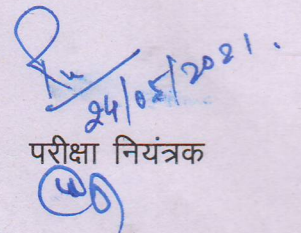 24/05/2021.
परीक्षा नियंत्रक